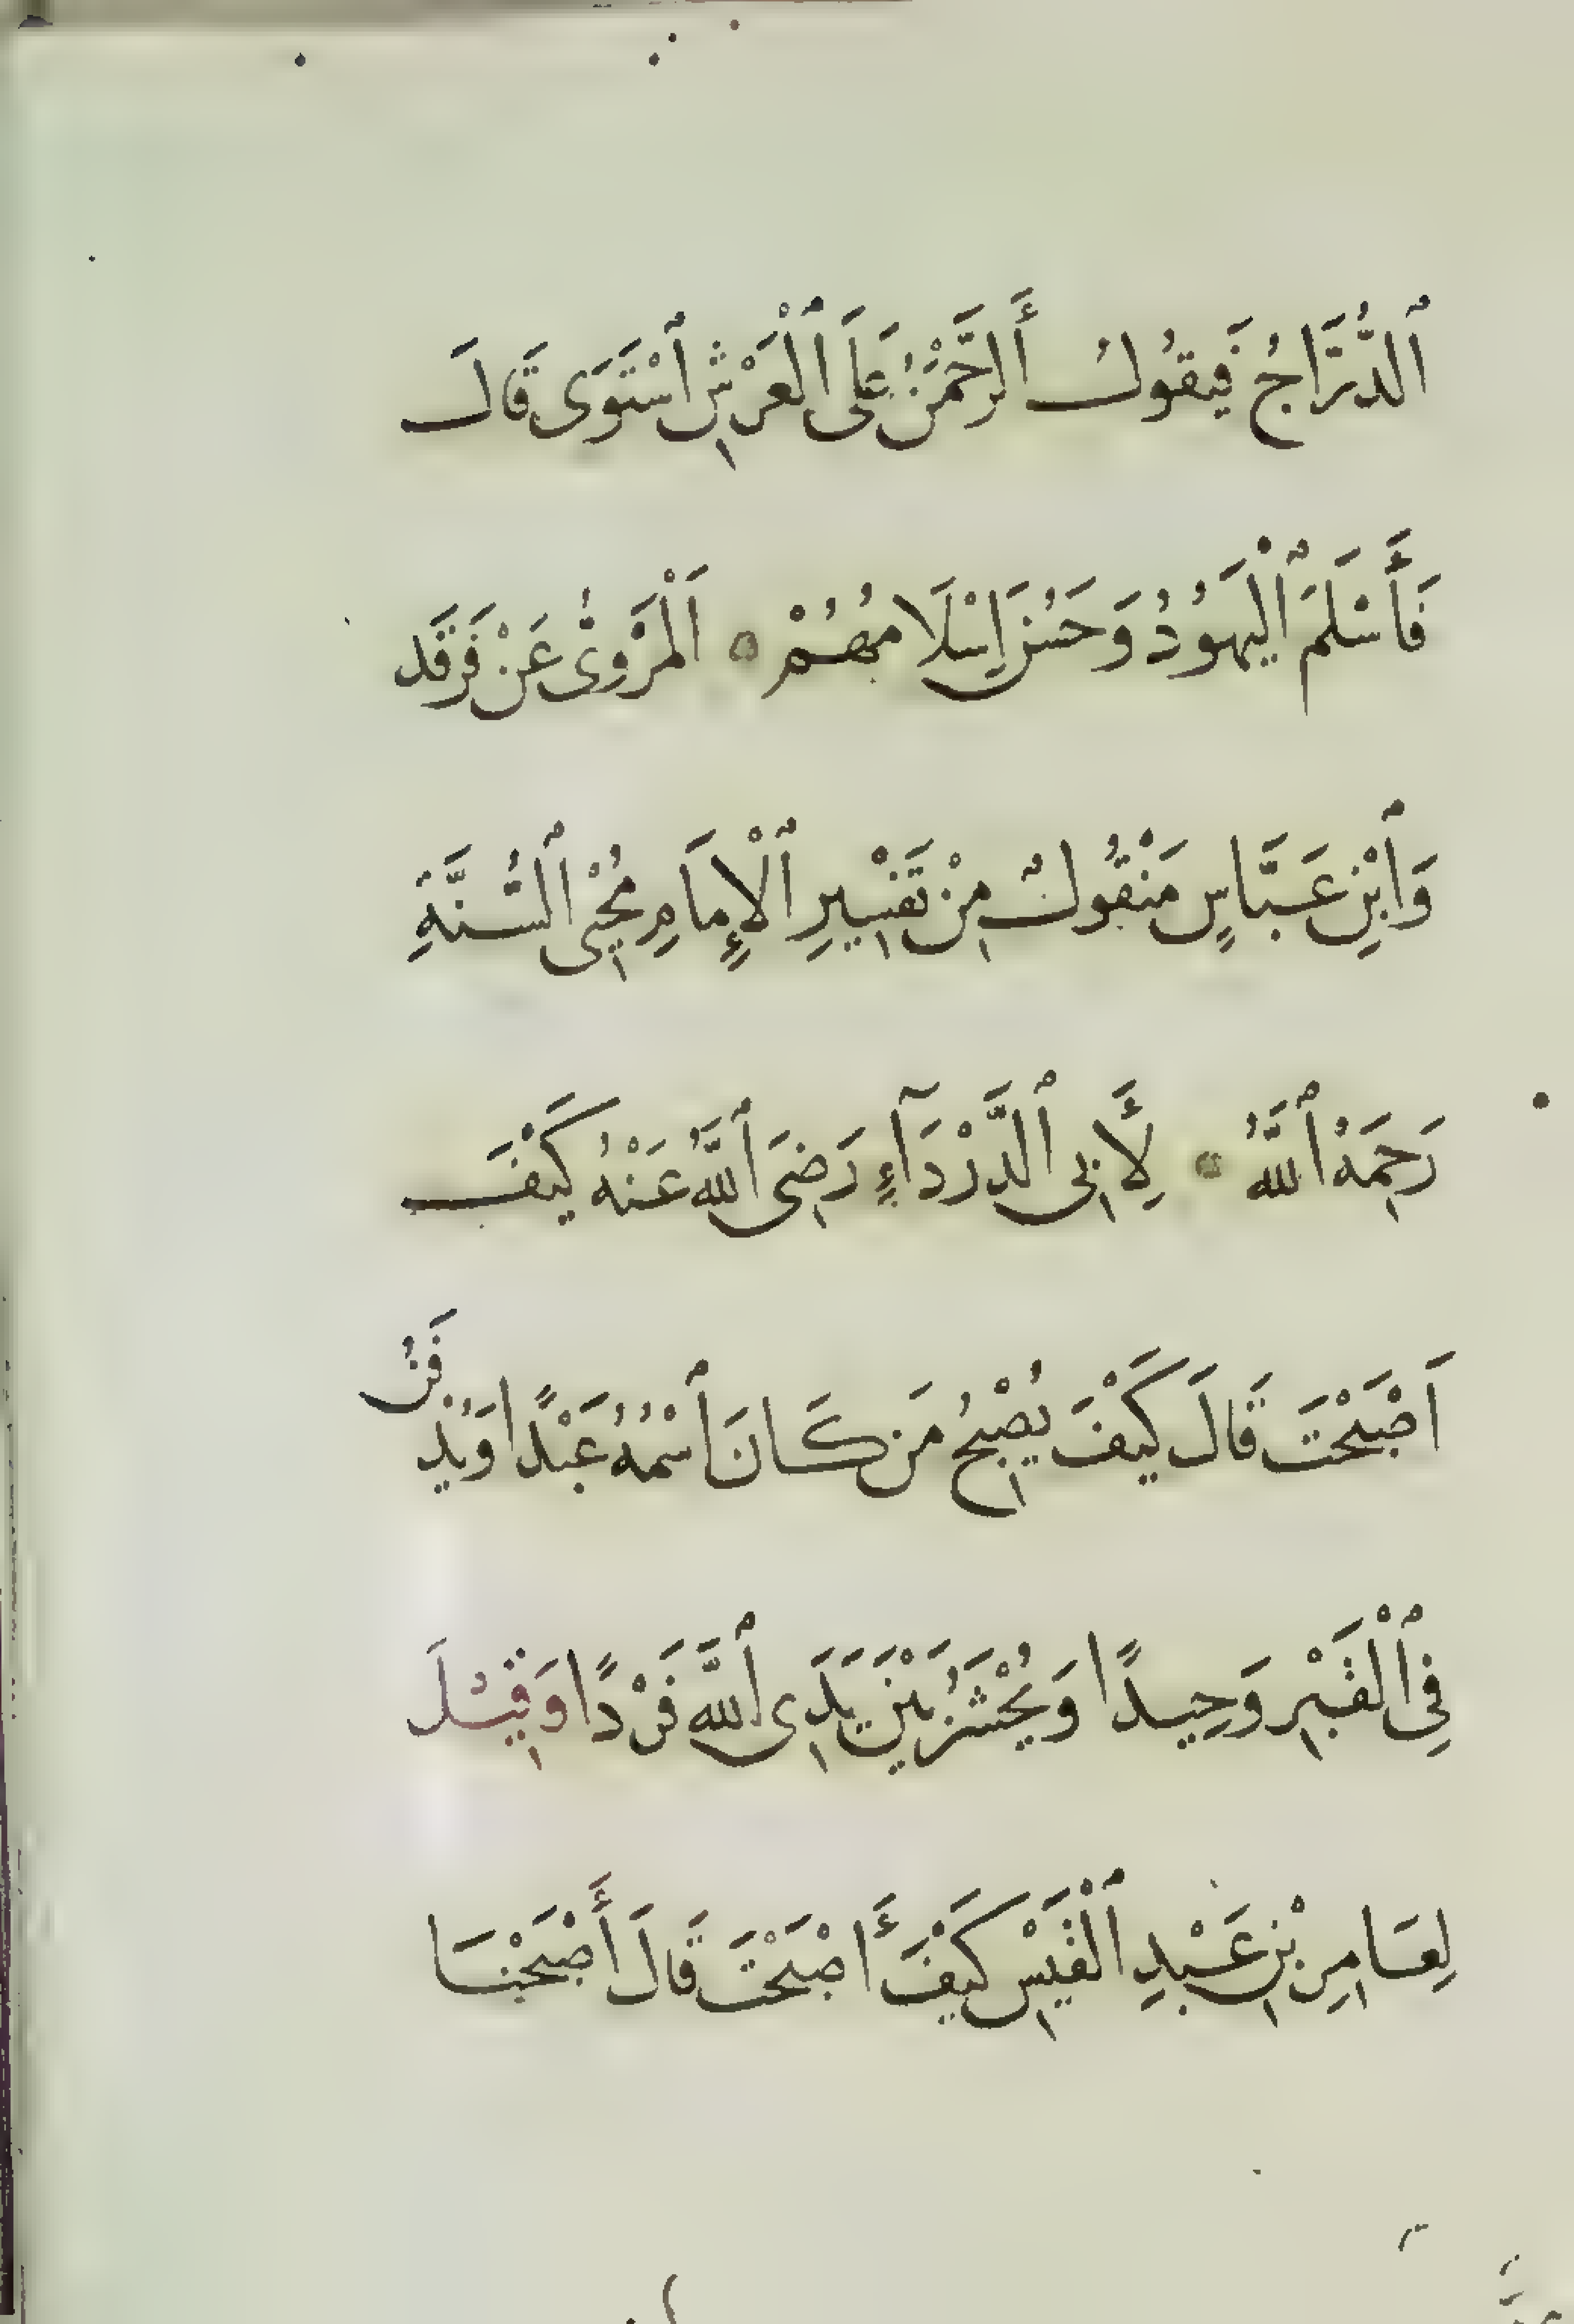 ٱلدُّرَّاجُ فَيَقُولُ أَلرَّحْمٰنُ عَلَى ٱلْعَرْشِ ٱسْتَوَى قَالَ
فَأَسْلَمَ ٱلْيَهُودُ وَحَسُنَ اِسْلَامُهُمْ ۞ اَلْمَرْوِىُّ عَنْ فَرْقَد
وَٱبْنِ عَبَّاسٍ مَنْقُولٌ مِنْ تَفْسِيرِ ٱلْإِمَامِ مُحْيِى ٱلسُّنَّةِ
رَحِمَهُ ٱللَّهُ ۞ لِأَبِى ٱلدَّرْدَآءِ رَضِىَ ٱللَّهُ عَنْهُ كَيْفَ
اَصْبَحْتَ قَالَ كَيْفَ يُصْبِحُ مَن كَانَ ٱسْمُهُ عَبْدًا وَيُدْفَنُ
فِى ٱلْقَبْرِ وَحِيدًا وَيُحْشَرُ بَيْنَ يَدَىِ ٱللَّهِ فَرْدًا وَقِيْلَ
لِعَامِرِ بْنِ عَبْدِ ٱلْقَيْسِ كَيْفَ أَصْبَحْتَ قَالَ أَصْبَحْنَا